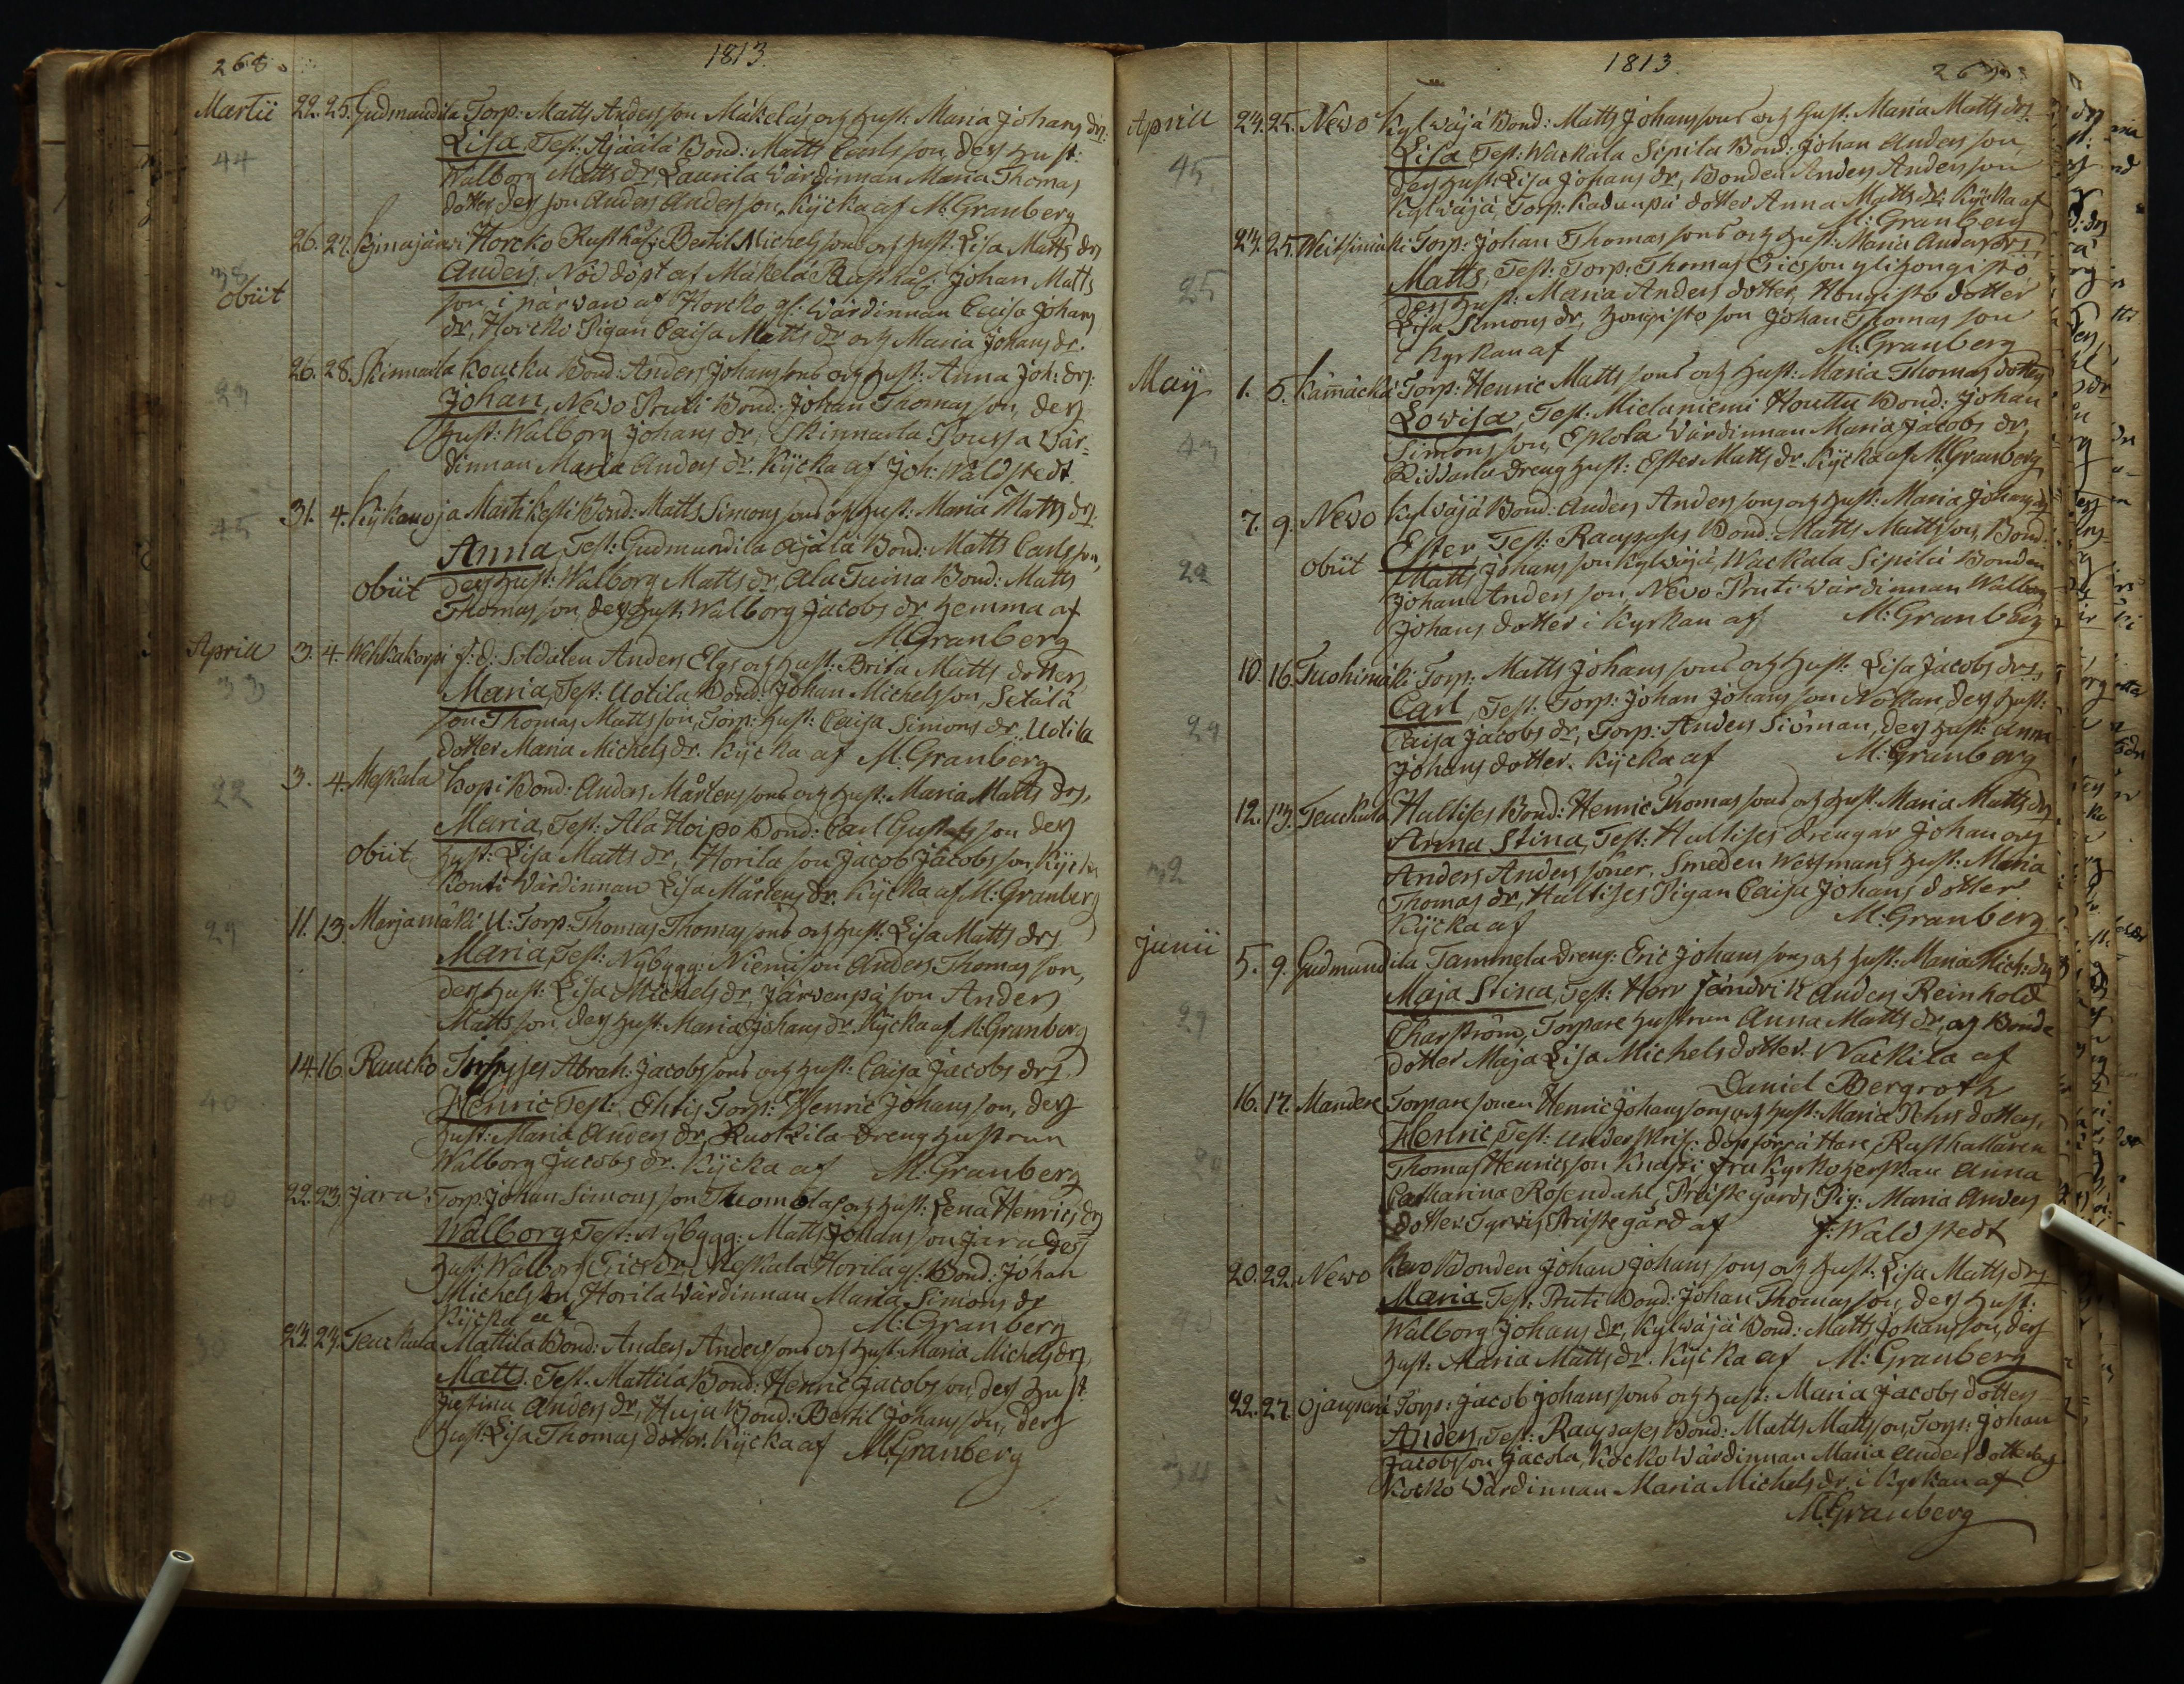 268
1813.
Martii 22. 25. Gudmundila Torp: Matts Andersson Mäkeläs och Hust: Maria Johans drs:
44 Lisa, Test: Ajäälä Bond: Matts Carlsson, des Hust:
Walborg Matts dr, Laurila Wärdinnan Maria Thomas
dotter, des son Anders Andersson. Kÿcka af M: Granberg
26. 27. Horcko Rusthåll: Bertil Michelssons och Hust: Lisa Matts drs
38 Anders, Nöddöpt af Mäkelä Rusthåll: Johan Matts
obiit son, i närwaro af Horcko gl: Wärdinnan Caisa Johans
dr, Horcko Pigan Caisa Matts dr och Maria Johans dr.
26. 28. Skinnarla Koucku Bond: Anders Johanssons och Hust: Anna Joh: drs:
29 Johan, Newo Pruti Bond: Johan Thomasson, des
Hust: Walborg Johans dr, Skinnarla Poussa Wär-
dinnan Maria Anders dr. Kÿcka af Joh: Waldstedt.
31. 4. Martikesti Bond: Matts Simonssons och Hust: Maria Matts drs:
45 Anna, Test: Gudmundila Ajälä Bond: Matts Carlsson,
obiit des Hust: Walborg Matts dr, Ala Tuina Bond: Matts
Thomasson, des Hust: Walborg Jacobs dr Hemma af
M: Granberg
Aprill 3. 4. Wehkakorpi f: d: Soldaten Anders Elgs och Hust: Brita Matts dotters
33 Maria, Test: Uotila Bond: Johan Michelsson, Setälä
son Thomas Mattsson, Torp: Hust: Caisa Simons dr, Uotila
dotter Maria Michels dr. Kÿcka af M: Granberg
3. 4. Meskala Kopi Bond: Anders Mårtenssons och Hust: Maria Matts drs,
22 Maria, Test: Ala Hoipo Bond: Carl Gustafsson des
obiit Hust: Lisa Matts dr, Horila son Jacob Jacobsson
Konti Wärdinnan Lisa Mårtens dr. Kÿcka af M: Granberg
11. 13. Marjamäki U: Torp: Thomas Thomassons och Hust: Lisa Matts drs
29 Maria, Test: Nybygg: Niemi son Anders Thomasson,
des Hust: Lisa Michels dr, Järwenpä son Anders
Mattsson, des Hust: Maria Johans dr. Kÿcka af M: Granberg
14. 16. Raucko Abrah: Jacobssons och Hust: Caisa Jacobs drs,
40 Henric, Test: Torp: Henric Johansson, des
Hust: Maria Anders dr, Ruotzila Dreng hustrun
Walborg Jacobs dr. Kÿcka af M: Granberg
22. 23. Jara Torp: Johan Simonsson Tuomolas och Hust: Lena Henrics drs
40 Walborg, Test: Nybygg: Matts Johansson Jara des
Hust: Walborg Erics dr, Meskala Horila gl: Bond: Johan
Michelsson, Horila Wärdinnan Maria Simons dr
Kÿcka af M: Granberg
23. 24. Teuckula Mattila Bond: Anders Anderssons och Hust: Maria Michels drs,
Matts. Test: Mattila Bond: Henric Jacobsson, des Hust
Justina Anders dr, Huju Bond: Bertil Johansson, des
Hust: Lisa Thomas dotter. Kÿcka af M: Granberg
1813
269
Aprill 24. 25. Newo Kylwäjä Bond: Matts Johanssons och Hust: Maria Matts drs
45 Lisa, Test: Wackala Sipilä Bond: Johan Andersson
des Hust: Lisa Johans dr, Bonden Anders Andersson
Kylwäjä, Torp: dotter Anna Matts dr. Kÿcka af
M: Granberg
24. 25. Weitsimäki Torp: Johan Thomassons och Hust: Maria Anders drs
25 Matts, Test: Torp: Thomas Ericsson
des Hust: Maria Anders dotter, Hongisto dotter
Lisa Simons dr, Hongisto son Johan Thomas son
i Kyrkan af M: Granberg
Maij 1. 5. Kämäckä Torp: Henric Mattssons och Hust: Maria Thomas dotters
43 Lowisa, Test: Mielaniemi Houttu Bond: Johan
Simonsson, Eskola Wärdinnan Maria Jacobs dr,
Dreng hust: Ester Matts dr. Kÿcka af M: Granberg
7. 9. Newo Kylwäjä Bond: Anders Anderssons och Hust: Maria Johans drs
22 Ester, Test: Raapases Bond: Matts Mattsson, Bond:
obiit Matts Johansson Kylwäjä, Wackala Sipilä Bonden
Johan Andersson, Newo Pruti Wärdinnan Walborg
Johans dotter i Kyrkan af M: Granberg
10. 16. Tuohimäki Torp: Matts Johanssons och Hust: Lisa Jacobs drs,
29 Carl, Test: Torp: Johan Johansson Nokan, des Hust:
Caisa Jacobs dr, Torp: Anders Siöman, des Hust: Anna
Johans dotter. Kÿcka af M: Granberg
12. 13. Teuckula Hultises Bond: Henric Thomassons och Hust: Maria Matts drs
Anna Stina, Test: Hultises drengar Johan och
32 Anders Anders söner, Smeden Wessmans Hust: Maria
Thomas dr, Hultises Pigan Caisa Johans dotter
Kÿcka af M: Granberg
Junii 5. 9. Gudmundila Tammela Dreng: Eric Johanssons och Hust: Maria Mich: drs
Maja Stina, Test: Herr Fändrik Anders Reinhold
29 Charström, Torpare hustrun Anna Matts dr, och Bonde
dotter Maja Lisa Michels dotter. Wackila af
Daniel Bergroth
16. 17. Mandere Torpare sonen Henric Johanssons och Hust: Maria dotters,
Henric, Test: Underskrif: döpförrättare, Rusthållaren
Thomas Henricsson Knapi, Fru Kyrkoherskan Anna
Catharina Rosendahl, Prästegårds Pig: Maria Anders
dotter. Tyrwis Prästegård af J: Waldstedt
20. 22. Newo Kewo Bonden Johan Johanssons och Hust: Lisa Matts drs
Maria, Test: Pruti Bond: Johan Thomasson, des Hust:
Walborg Johans dr, Kylwäjä Bond: Matts Johansson, des
Hust: Maria Matts dr. Kÿcka af M: Granberg
22. 27. Torp: Jacob Johanssons och Hust: Maria Jacobs dotters
Anders, Test: Raapases Bond: Matts Mattsson, Torp: Johan
34 Jacobsson Jacola, Kocko Wärdinnan Maria Anders dotter och
Kocko Wärdinnan Maria Michels dr. i Kyrkan af
M: Granberg